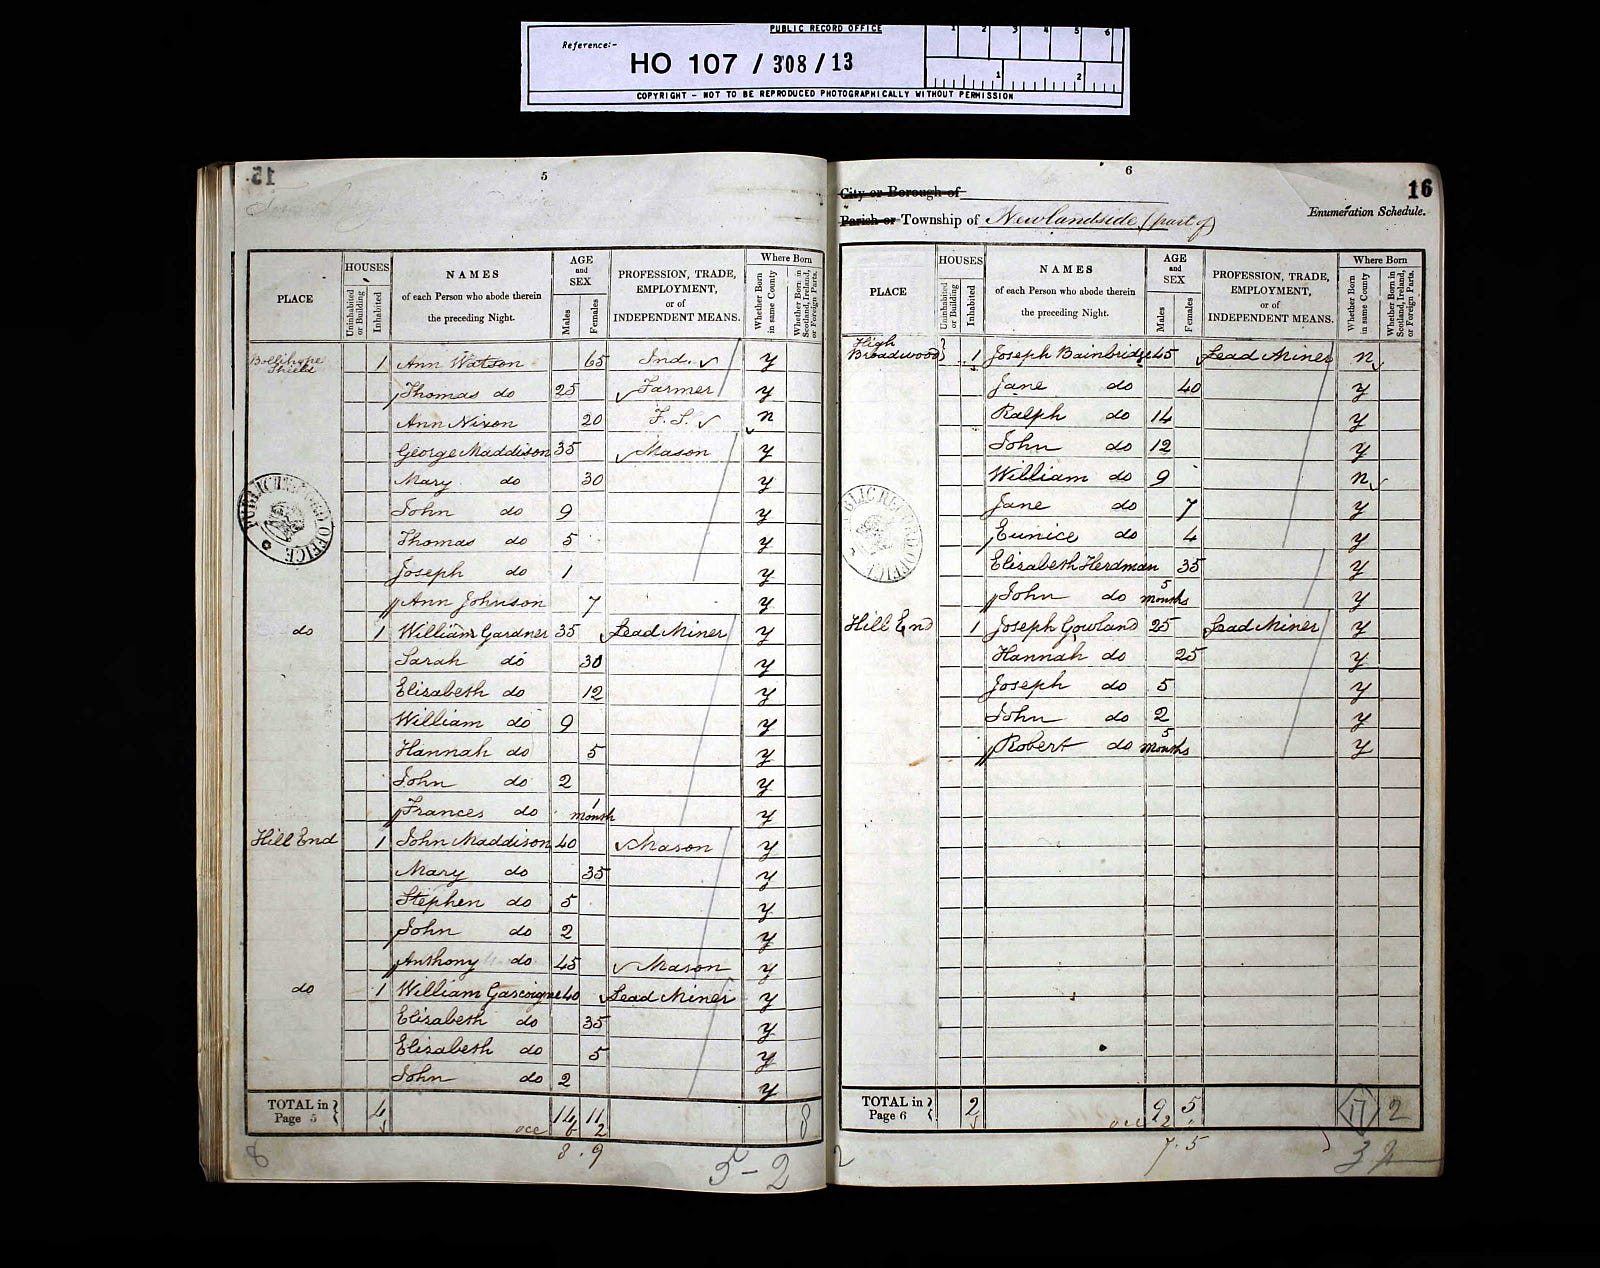 PUBLIC RECORD OFFICE
Reference:-
HO 107 / 308 / 13
1 2 3 4 5 6
1 2
COPYRIGHT - NOT TO BE REPRODUCED PHOTOGRAPHICALLY WITHOUT PERMISSION
15
5
PLACE
HOUSES
Uninhabited or Building
Inhabited
NAMES
of each Person who abode therein
the preceding Night.
AGE
and
SEX
Males
Females
PROFESSION, TRADE,
EMPLOYMENT,
or of
INDEPENDENT MEANS.
Where Born
Whether Born in same County
Whether Born in Scotland, Ireland, or Foreign Parts.
Bollihope Shield 1 Ann Watson 65 Ind. y
Thomas do 25 Farmer y
Ann Nixon 20 F.S. n
George Maddison 35 Mason y
Mary do 30 y
John do 9 y
Thomas do 5 y
Joseph do 1 y
Ann Johnson 7 y
do 1 William Gardner 35 Lead Miner y
Sarah do 30 y
Elizabeth do 12 y
William do 9 y
Hannah do 5 y
John do 2 y
Frances do 1 month y
Hill End 1 John Maddison 40 Mason y
Mary do 35 y
Stephen do 5 y
John do 2 y
Anthony do 45 Mason y
do 1 William Gascoigne 40 Lead Miner y
Elizabeth do 35 y
Elizabeth do 5 y
John do 2 y
TOTAL in Page 5 4 14 11 8
occ 6 2
8 . 9
8
5 - 2
PUBLIC RECORD OFFICE
6
16
City or Borough of
Parish or Township of Newlandside (part of)
Enumeration Schedule.
PLACE
HOUSES
Uninhabited or Building
Inhabited
NAMES
of each Person who abode therein
the preceding Night.
AGE
and
SEX
Males
Females
PROFESSION, TRADE,
EMPLOYMENT,
or of
INDEPENDENT MEANS.
Where Born
Whether Born in same County
Whether Born in Scotland, Ireland, or Foreign Parts.
High Broadwood 1 Joseph Bainbridge 45 Lead Miner n
Jane do 40 y
Ralph do 14 y
John do 12 y
William do 9 n
Jane do 7 y
Eunice do 4 y
Elizabeth Herdman 35 y
John do 5 months y
Hill End 1 Joseph Gowland 25 Lead Miner y
Hannah do 25 y
Joseph do 5 y
John do 2 y
Robert do 5 months y
TOTAL in Page 6 2 9 5 17 2
occ 2
7 . 5
2
3
PUBLIC RECORD OFFICE